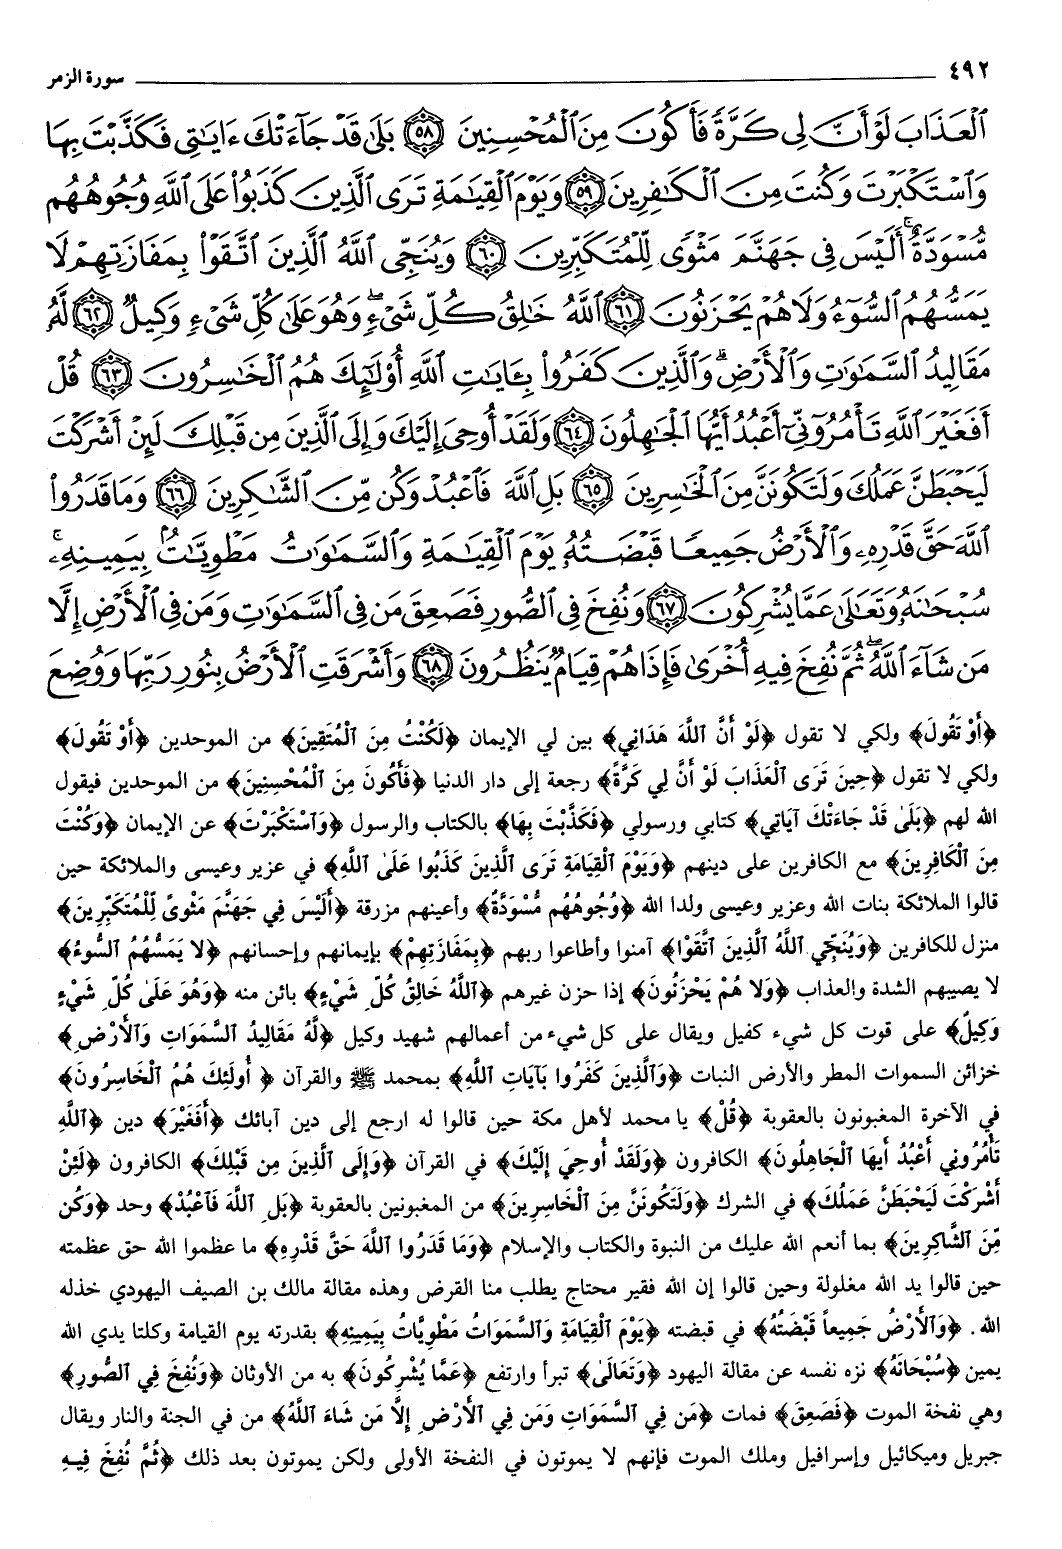 ٤٩٢ سورة الزمر
ٱلْعَذَابَ لَوْ أَنَّ لِى كَرَّةً فَأَكُونَ مِنَ ٱلْمُحْسِنِينَ ٥٨ بَلَىٰ قَدْ جَآءَتْكَ ءَايَٰتِى فَكَذَّبْتَ بِهَا
وَٱسْتَكْبَرْتَ وَكُنتَ مِنَ ٱلْكَٰفِرِينَ ٥٩ وَيَوْمَ ٱلْقِيَٰمَةِ تَرَى ٱلَّذِينَ كَذَبُوا۟ عَلَى ٱللَّهِ وُجُوهُهُم
مُّسْوَدَّةٌ ۚ أَلَيْسَ فِى جَهَنَّمَ مَثْوًى لِّلْمُتَكَبِّرِينَ ٦٠ وَيُنَجِّى ٱللَّهُ ٱلَّذِينَ ٱتَّقَوْا۟ بِمَفَازَتِهِمْ لَا
يَمَسُّهُمُ ٱلسُّوٓءُ وَلَا هُمْ يَحْزَنُونَ ٦١ ٱللَّهُ خَٰلِقُ كُلِّ شَىْءٍ ۖ وَهُوَ عَلَىٰ كُلِّ شَىْءٍ وَكِيلٌ ٦٢ لَّهُۥ
مَقَالِيدُ ٱلسَّمَٰوَٰتِ وَٱلْأَرْضِ ۗ وَٱلَّذِينَ كَفَرُوا۟ بِـَٔايَٰتِ ٱللَّهِ أُو۟لَٰٓئِكَ هُمُ ٱلْخَٰسِرُونَ ٦٣ قُلْ
أَفَغَيْرَ ٱللَّهِ تَأْمُرُوٓنِّىٓ أَعْبُدُ أَيُّهَا ٱلْجَٰهِلُونَ ٦٤ وَلَقَدْ أُوحِىَ إِلَيْكَ وَإِلَى ٱلَّذِينَ مِن قَبْلِكَ لَئِنْ أَشْرَكْتَ
لَيَحْبَطَنَّ عَمَلُكَ وَلَتَكُونَنَّ مِنَ ٱلْخَٰسِرِينَ ٦٥ بَلِ ٱللَّهَ فَٱعْبُدْ وَكُن مِّنَ ٱلشَّٰكِرِينَ ٦٦ وَمَا قَدَرُوا۟
ٱللَّهَ حَقَّ قَدْرِهِۦ وَٱلْأَرْضُ جَمِيعًا قَبْضَتُهُۥ يَوْمَ ٱلْقِيَٰمَةِ وَٱلسَّمَٰوَٰتُ مَطْوِيَّٰتٌۢ بِيَمِينِهِۦ ۚ
سُبْحَٰنَهُۥ وَتَعَٰلَىٰ عَمَّا يُشْرِكُونَ ٦٧ وَنُفِخَ فِى ٱلصُّورِ فَصَعِقَ مَن فِى ٱلسَّمَٰوَٰتِ وَمَن فِى ٱلْأَرْضِ إِلَّا
مَن شَآءَ ٱللَّهُ ۖ ثُمَّ نُفِخَ فِيهِ أُخْرَىٰ فَإِذَا هُمْ قِيَامٌ يَنظُرُونَ ٦٨ وَأَشْرَقَتِ ٱلْأَرْضُ بِنُورِ رَبِّهَا وَوُضِعَ
﴿أَوْ تَقُولَ﴾ ولكي لا تقول ﴿لَوْ أَنَّ ٱللَّهَ هَدَانِي﴾ بين لي الإيمان ﴿لَكُنْتُ مِنَ ٱلْمُتَّقِينَ﴾ من الموحدين ﴿أَوْ تَقُولَ﴾
ولكي لا تقول ﴿حِينَ تَرَى ٱلْعَذَابَ لَوْ أَنَّ لِي كَرَّةً﴾ رجعة إلى دار الدنيا ﴿فَأَكُونَ مِنَ ٱلْمُحْسِنِينَ﴾ من الموحدين فيقول
الله لهم ﴿بَلَىٰ قَدْ جَاءَتْكَ آيَاتِي﴾ كتابي ورسولي ﴿فَكَذَّبْتَ بِهَا﴾ بالكتاب والرسول ﴿وَٱسْتَكْبَرْتَ﴾ عن الإيمان ﴿وَكُنْتَ
مِنَ ٱلْكَافِرِينَ﴾ مع الكافرين على دينهم ﴿وَيَوْمَ ٱلْقِيَامَةِ تَرَى ٱلَّذِينَ كَذَبُوا عَلَىٰ ٱللَّهِ﴾ في عزير وعيسى والملائكة حين
قالوا الملائكة بنات الله وعزير وعيسى ولدا الله ﴿وُجُوهُهُم مُّسْوَدَّةٌ﴾ وأعينهم مزرقة ﴿أَلَيْسَ فِي جَهَنَّمَ مَثْوىً لِّلْمُتَكَبِّرِينَ﴾
منزل للكافرين ﴿وَيُنَجِّي ٱللَّهُ ٱلَّذِينَ ٱتَّقَوْا﴾ آمنوا وأطاعوا ربهم ﴿بِمَفَازَتِهِمْ﴾ بإيمانهم وإحسانهم ﴿لَا يَمَسُّهُمُ ٱلسُّوءُ﴾
لا يصيبهم الشدة والعذاب ﴿وَلَا هُمْ يَحْزَنُونَ﴾ إذا حزن غيرهم ﴿ٱللَّهُ خَالِقُ كُلِّ شَيْءٍ﴾ بائن منه ﴿وَهُوَ عَلَىٰ كُلِّ شَيْءٍ
وَكِيلٌ﴾ على قوت كل شيء كفيل ويقال على كل شيء من أعمالهم شهيد وكيل ﴿لَّهُ مَقَالِيدُ ٱلسَّمَوَاتِ وَٱلْأَرْضِ﴾
خزائن السموات المطر والأرض النبات ﴿وَٱلَّذِينَ كَفَرُوا بَآيَاتِ ٱللَّهِ﴾ بمحمد ﷺ والقرآن ﴿أُولَئِكَ هُمُ ٱلْخَاسِرُونَ﴾
في الآخرة المغبونون بالعقوبة ﴿قُلْ﴾ يا محمد لأهل مكة حين قالوا له ارجع إلى دين آبائك ﴿أَفَغَيْرَ﴾ دين ﴿ٱللَّهِ
تَأْمُرُونِي أَعْبُدُ أَيهَا ٱلْجَاهِلُونَ﴾ الكافرون ﴿وَلَقَدْ أُوحِيَ إِلَيْكَ﴾ في القرآن ﴿وَإِلَى ٱلَّذِينَ مِن قَبْلِكَ﴾ الكافرون ﴿لَئِنْ
أَشْرَكْتَ لَيَحْبَطَنَّ عَمَلُكَ﴾ في الشرك ﴿وَلَتَكُونَنَّ مِنَ ٱلْخَاسِرِينَ﴾ من المغبونين بالعقوبة ﴿بَلِ ٱللَّهَ فَٱعْبُدْ﴾ وحد ﴿وَكُن
مِّنَ ٱلشَّاكِرِينَ﴾ بما أنعم الله عليك من النبوة والكتاب والإسلام ﴿وَمَا قَدَرُوا ٱللَّهَ حَقَّ قَدْرِهِ﴾ ما عظموا الله حق عظمته
حين قالوا يد الله مغلولة وحين قالوا إن الله فقير محتاج يطلب منا القرض وهذه مقالة مالك بن الصيف اليهودي خذله
الله. ﴿وَٱلْأَرْضُ جَمِيعاً قَبْضَتُهُ﴾ في قبضته ﴿يَوْمَ ٱلْقِيَامَةِ وَٱلسَّمَوَاتُ مَطْوِيَّاتٌ بِيَمِينِهِ﴾ بقدرته يوم القيامة وكلتا يدي الله
يمين ﴿سُبْحَانَهُ﴾ نزه نفسه عن مقالة اليهود ﴿وَتَعَالَىٰ﴾ تبرأ وارتفع ﴿عَمَّا يُشْرِكُونَ﴾ به من الأوثان ﴿وَنُفِخَ فِي ٱلصُّورِ﴾
وهي نفخة الموت ﴿فَصَعِقَ﴾ فمات ﴿مَن فِي ٱلسَّمَوَاتِ وَمَن فِي ٱلْأَرْضِ إِلَّا مَن شَاءَ ٱللَّهُ﴾ من في الجنة والنار ويقال
جبريل وميكائيل وإسرافيل وملك الموت فإنهم لا يموتون في النفخة الأولى ولكن يموتون بعد ذلك ﴿ثُمَّ نُفِخَ فِيهِ